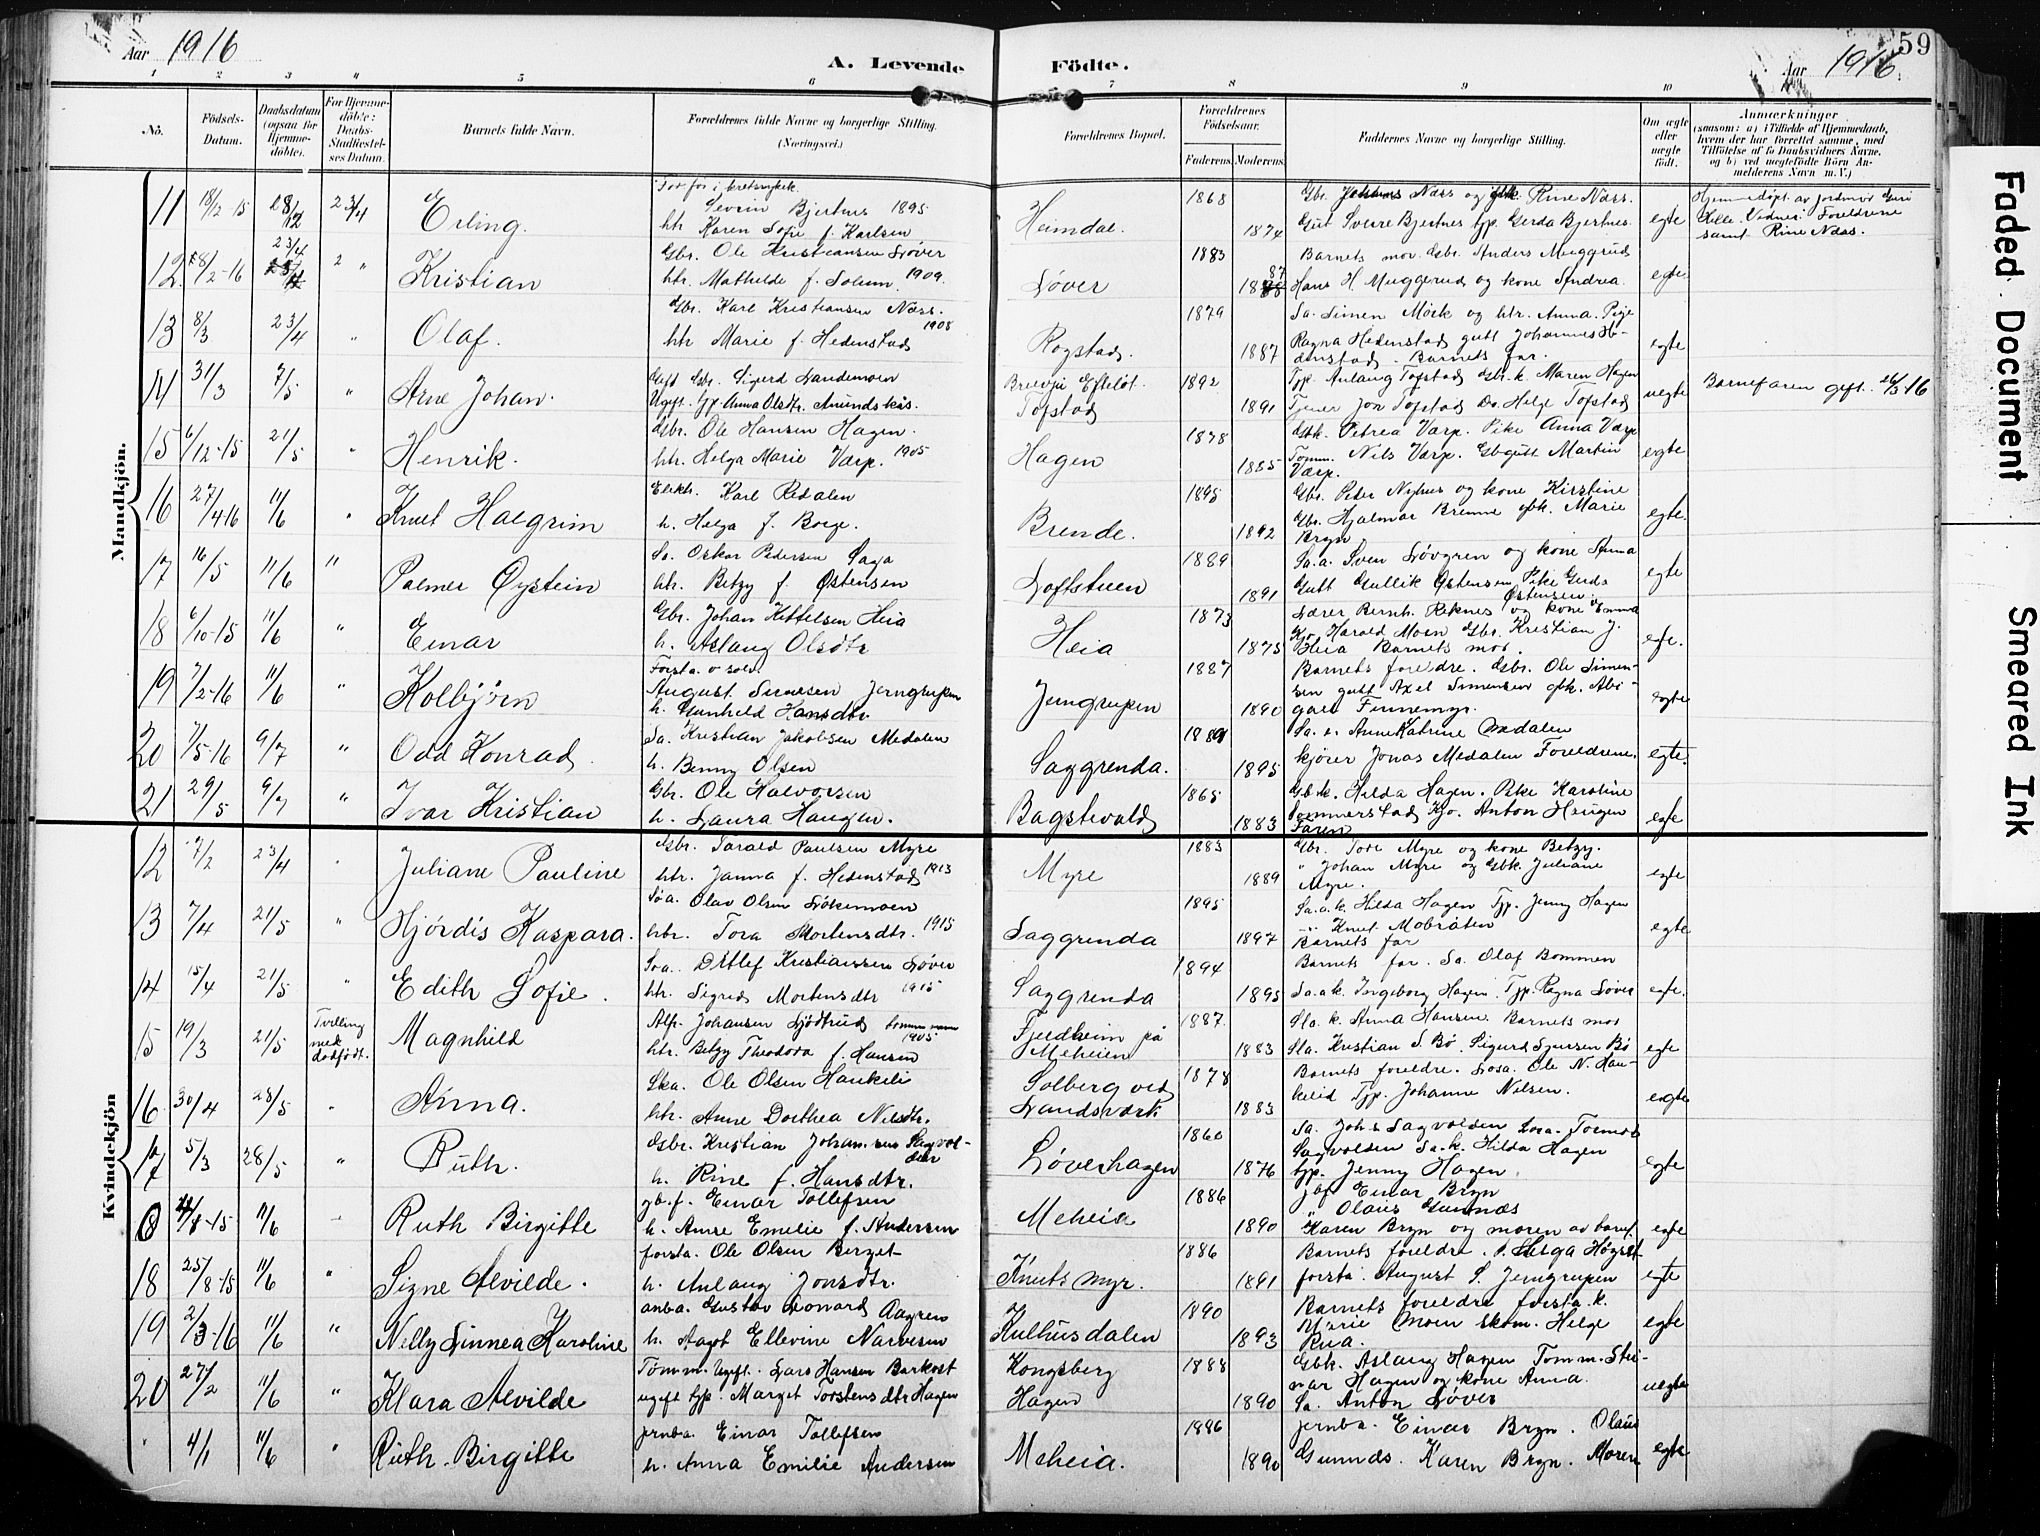 Aar 1916
A. Levende Födte.
Aar 1916
59
1 2 3 4 5 6 7 8 9 10
No.
Födsels-Datum.
Daabsdatum (ogsaa for Hjemme-döbte).
For Hjemme-döbte: Daabs-Stadfæstel-ses Datum.
Barnets fulde Navn.
Forældrenes fulde Navne og borgerlige Stilling.
(Næringsvei.)
Forældrenes Bopæl.
Forældrenes Födselsaar.
Faderens. Moderens.
Faddernes Navne og borgerlige Stilling.
Om ægte eller uægte födt.
Anmærkninger
(saasom: a) i Tilfælde af Hjemmedaab, hvem der har forrettet samme, med Tilföielse af to Daabsvidners Navne, og b) ved uegtefödte Börn An-melderens Navn m. V.)
Mandkjön.
11 18/2-15 28/12 23/4 Erling.
Severin Bjertnes 1895
htr Karen Sofie f. Karlsen
Heimdal. 1868 1874
Gbr. Johannes Næss og gbk. Rine Næss.
Gut Sverre Bjertnes tjp. Gerda Bjertnes. egte
Hjemmedöpt av jordmor Guri
Lille. Vidner: Foreldrene
samt Rine Næss.
12 28/2-16 23/4 " Kristian
Gbr. Ole Kristiansen Løver
htr. Mathilde f. Solum. 1909.
Løver 1883 1887
Barnets mor. Gbr. Anders Muggerud
Hans H Muggerud og kone Andrea. egte.
13 8/3 23/4 " Olaf.
Gbr. Karl Kristiansen Næss.
htr Marie f. Hedenstad 1908
Rogstad. 1879 1887
Sa. Simen Mörk og htr. Anna. Pige
Ragna Hedenstad gutt Johannes He-
denstad. Barnets far. egte
14 31/3 7/5 " Arne Johan.
Gift Gbr. Sigurd Landemoen
Ugift. tjp Anna Olsdtr. Amundskås.
Efteløt.
Tofstad 1892 1891
Tjp. Aslaug Tofstad Gbr.k. Maren Hagen
Tjener Jon Tofstad Do. Helge Tofstad uegte
Barnefaren gift. 26/3-16
15 6/12-15 21/5 " Henrik.
Gbr. Ole Hansen Hagen.
htr. Helga Marie Værp. 1905
Hagen 1878 1885
Gbk. Petrea Værp. Pike Anna Værp
Tomm. Nils Værp. Gbgutt Martin
Værp. egte
16 27/4-16 11/6 " Knut Halgrim
Elekh. Karl Redalen
h. Helga f. Borge.
Brende. 1895 1892
Gbr. Peter Nyhus og kone Kirstine
Gbr. Hjalmar Brenne gbk. Marie
Bryn egte.
17 16/5 11/6 " Palmer Øystein
Sa. Oskar Pedersen Saga
htr. Betzy f. Østensen
Loftstuen 1889 1891
Sa.a. Sven Lövgren og kone Anna
Gutt Gullik Østensen Pike Gerds
Østensen. egte
18 6/10-15 11/6 " Einar
Gbr. Johan Kittelsen Heia
h. Aslaug Olsdtr
Heia 1873 1875
Lærer Bernh. Reknes og kone Emma
Kjø. Harald Moen Gbr. Kristian J.
Heia Barnets mor. egte.
19 7/2-16 11/6 " Kolbjørn
August Simensen Jerngruben
h. Gunhild Hansdtr.
Jerngruben 1887 1890
Barnets foreldre. Gbr. Ole Simen-
sen gutt Axel Simensen gbk. Abi-
gael Finnemyr. egte
20 7/5-16 9/7 " Odd Konrad.
Sa. Kristian Jakobsen Medalen
h. Benny Olsen
Saggrenda. 1889 1895
Anne Katrine Medalen
kjører Jonas Medalen Foreldrene. egte.
21 29/5 9/7 " Ivar Kristian
Gbr. Ole Halvorsen
h. Laura Haugen.
Bagstevold 1865 1883
Gbk. Hilda Hagen. Pike Karoline
Sommerstad Kjø. Anton Heugen
Faren egte
Kvindekjön
12 7/2 23/4 Juliane Pauline
Gbr. Tarald Paulsen Myre
htr. Janna f. Hedenstad 1913
Myre 1883 1889
Gbr. Tore Myre og kone Betzy.
" Johan Myre og Gbk. Juliane
Myre. egte
13 7/4 21/5 " Hjördis Kaspara.
Olav Olsen Løkemoen
htr. Tora Mortensdtr. 1915
Saggrenda 1895 1897
Sa.a.k. Hilda Hagen Tjp. Jenny Hagen
" Knut Mobråten
Barnets far egte
14 15/4 21/5 " Edith Sofie.
Sva. Detlef Kristiansen Løver
htr. Sigrid Mortensdtr 1915
Saggrenda 1894 1895
Barnets far. Sa. Olaf Bommen
Sa.a.k. Ingeborg Hagen. Tjp. Ragna Løver egte.
15 19/3 21/5 Tvilling med dødfødt. Magnhild
Alfr. Johansen Ljödtrud 1905
htr. Betzy Theodora f. Hansen
Fjeldheim på
Meheien 1887. 1883
Sla. k. Anna Hansen. Barnets mor
Sla. Kristian S. Bø. Sigurd Sjursen Bø egte
16 30/4 28/5 " Anna.
Ska. Ole Olsen Haukeli
htr. Anne Dorthea Nilsdtr.
Solberg ved
Landsverk 1878 1883
Barnets foreldre. Losa. Ole N. Hau-
kelid Tjp. Johanne Nilsen. egte
17 5/3 28/5 " Ruth.
Gbr. Kristian Johansen Sagvol-
den
h. Rine f. Hansdtr.
Løverhagen 1860 1876
Sa. Johs Sagvolden Losa. Tormod
Sagvolden Sa.k. Hilda Hagen
tjp. Jenny Hagen. egte
11/6 Ruth Birgitte
Einar Tollefsen
h. Anne Emelie f. Andersen
Meheia 1886 1890
Einar Bryn
" Olaus Gunnæs
Karen Bryn og moren av barnet. egte
18 25/8-15 11/6 " Signe Alvilde.
forsta. Ole Olsen Berget
h. Aslaug Jonsdtr.
Knuts myr. 1886 1891
Barnets foreldre. Helga Høgset
forsta. August S. Jerngruben egte
19 2/3-16 11/6 " Nelly Linnea Karoline
anba. Gustav Leonard Aagren
h. Aagot Ellevine Narvesen
Kulhusdalen 1890 1893
Barnets foreldre forsta.k.
Marie Moen skom. Helge
Rua. egte
20 27/2 11/6 " Klara Alvilde
Tømm. Ugift. Lars Hansen Barkost
ugift tjp. Marget Torstensdtr Hagen
Kongsberg
Hagen 1888 1890
Gbk. Aslaug Hagen Tomm. Stei-
nar Hagen og kone Anna.
Sa. Anton Løver uegte
" 4/1 11/6 " Ruth. Birgitte
jernba. Einar Tollefsen
h. Anna Emilie Andersen
Meheia. 1886 1890
jernba. Einar Bryn. Olaus
Gunnæs. Karen Bryn. Moren egte
Faded Document
Smeared Ink